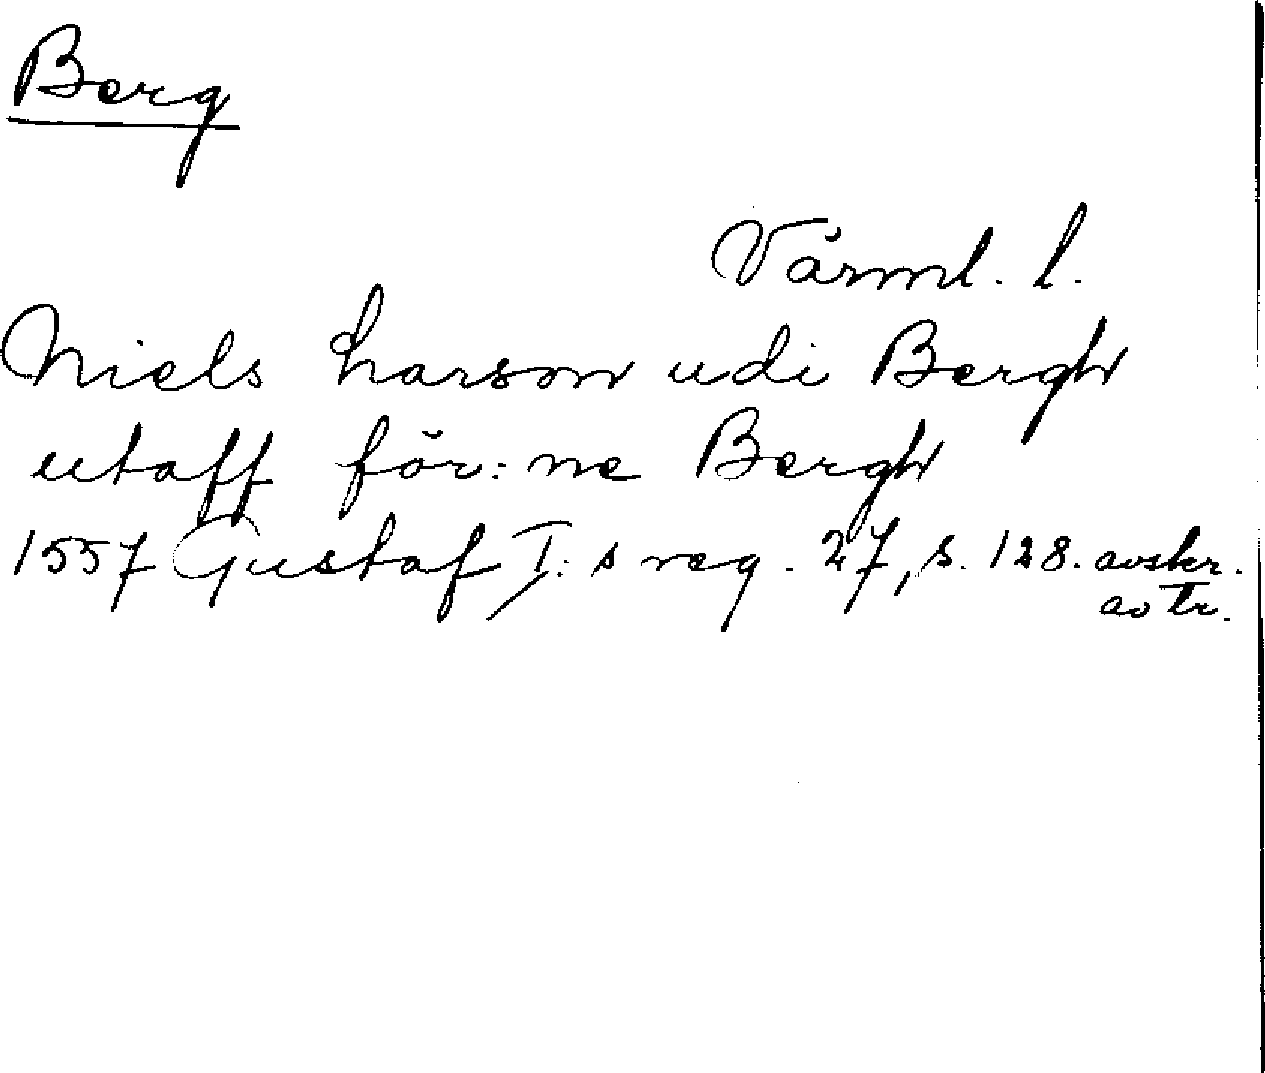 Berg
Värml. l.
Niels Larson udi Bergh
utaff för:ne Bergh
1557 Gustaf I:s reg. 27, s. 128. avskr.
av tr.